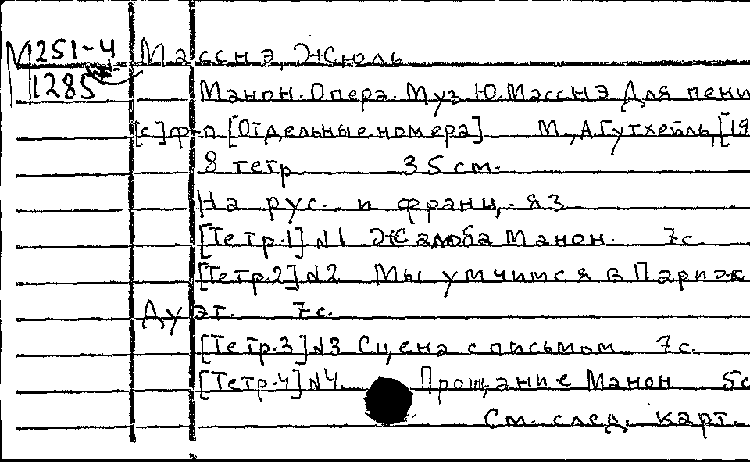 М251-4
1285
Массне, Жюль
Манон. Опера. Муз. Ю. Массне Для пени
[с] ф-п [Отдельные номера] М., А. Гутхейль, [19
8 тетр 35 см.
На рус. и франц. яз
[Тетр. 1] №1 Жалоба Манон. 7с.
[Тетр. 2] №2 Мы умчимся в Париж
Дуэт. 7с.
[Тетр. 3] №3 Сцена с письмом 7с.
[Тетр. 4] №4. Прощание Манон 5с
См. след. карт.